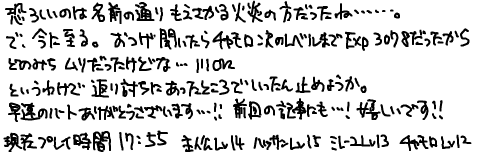 恐ろしいのは名前の通りもえさかる火炎の方だったね……。
で、今に至る。おつげ聞いたらチャモロ次のレベルまでExp3078だったから
どのみちムリだったけどな… 川orz
というわけで返り討ちにあったところでいったん止めようか。
早速のハートありがとうございます…!! 前回の記事にも…! 嬉しいです!!
現在プレイ時間 17:55 主人公Lv14 ハッサンLv15 ミレーユLv13 チャモロLv12